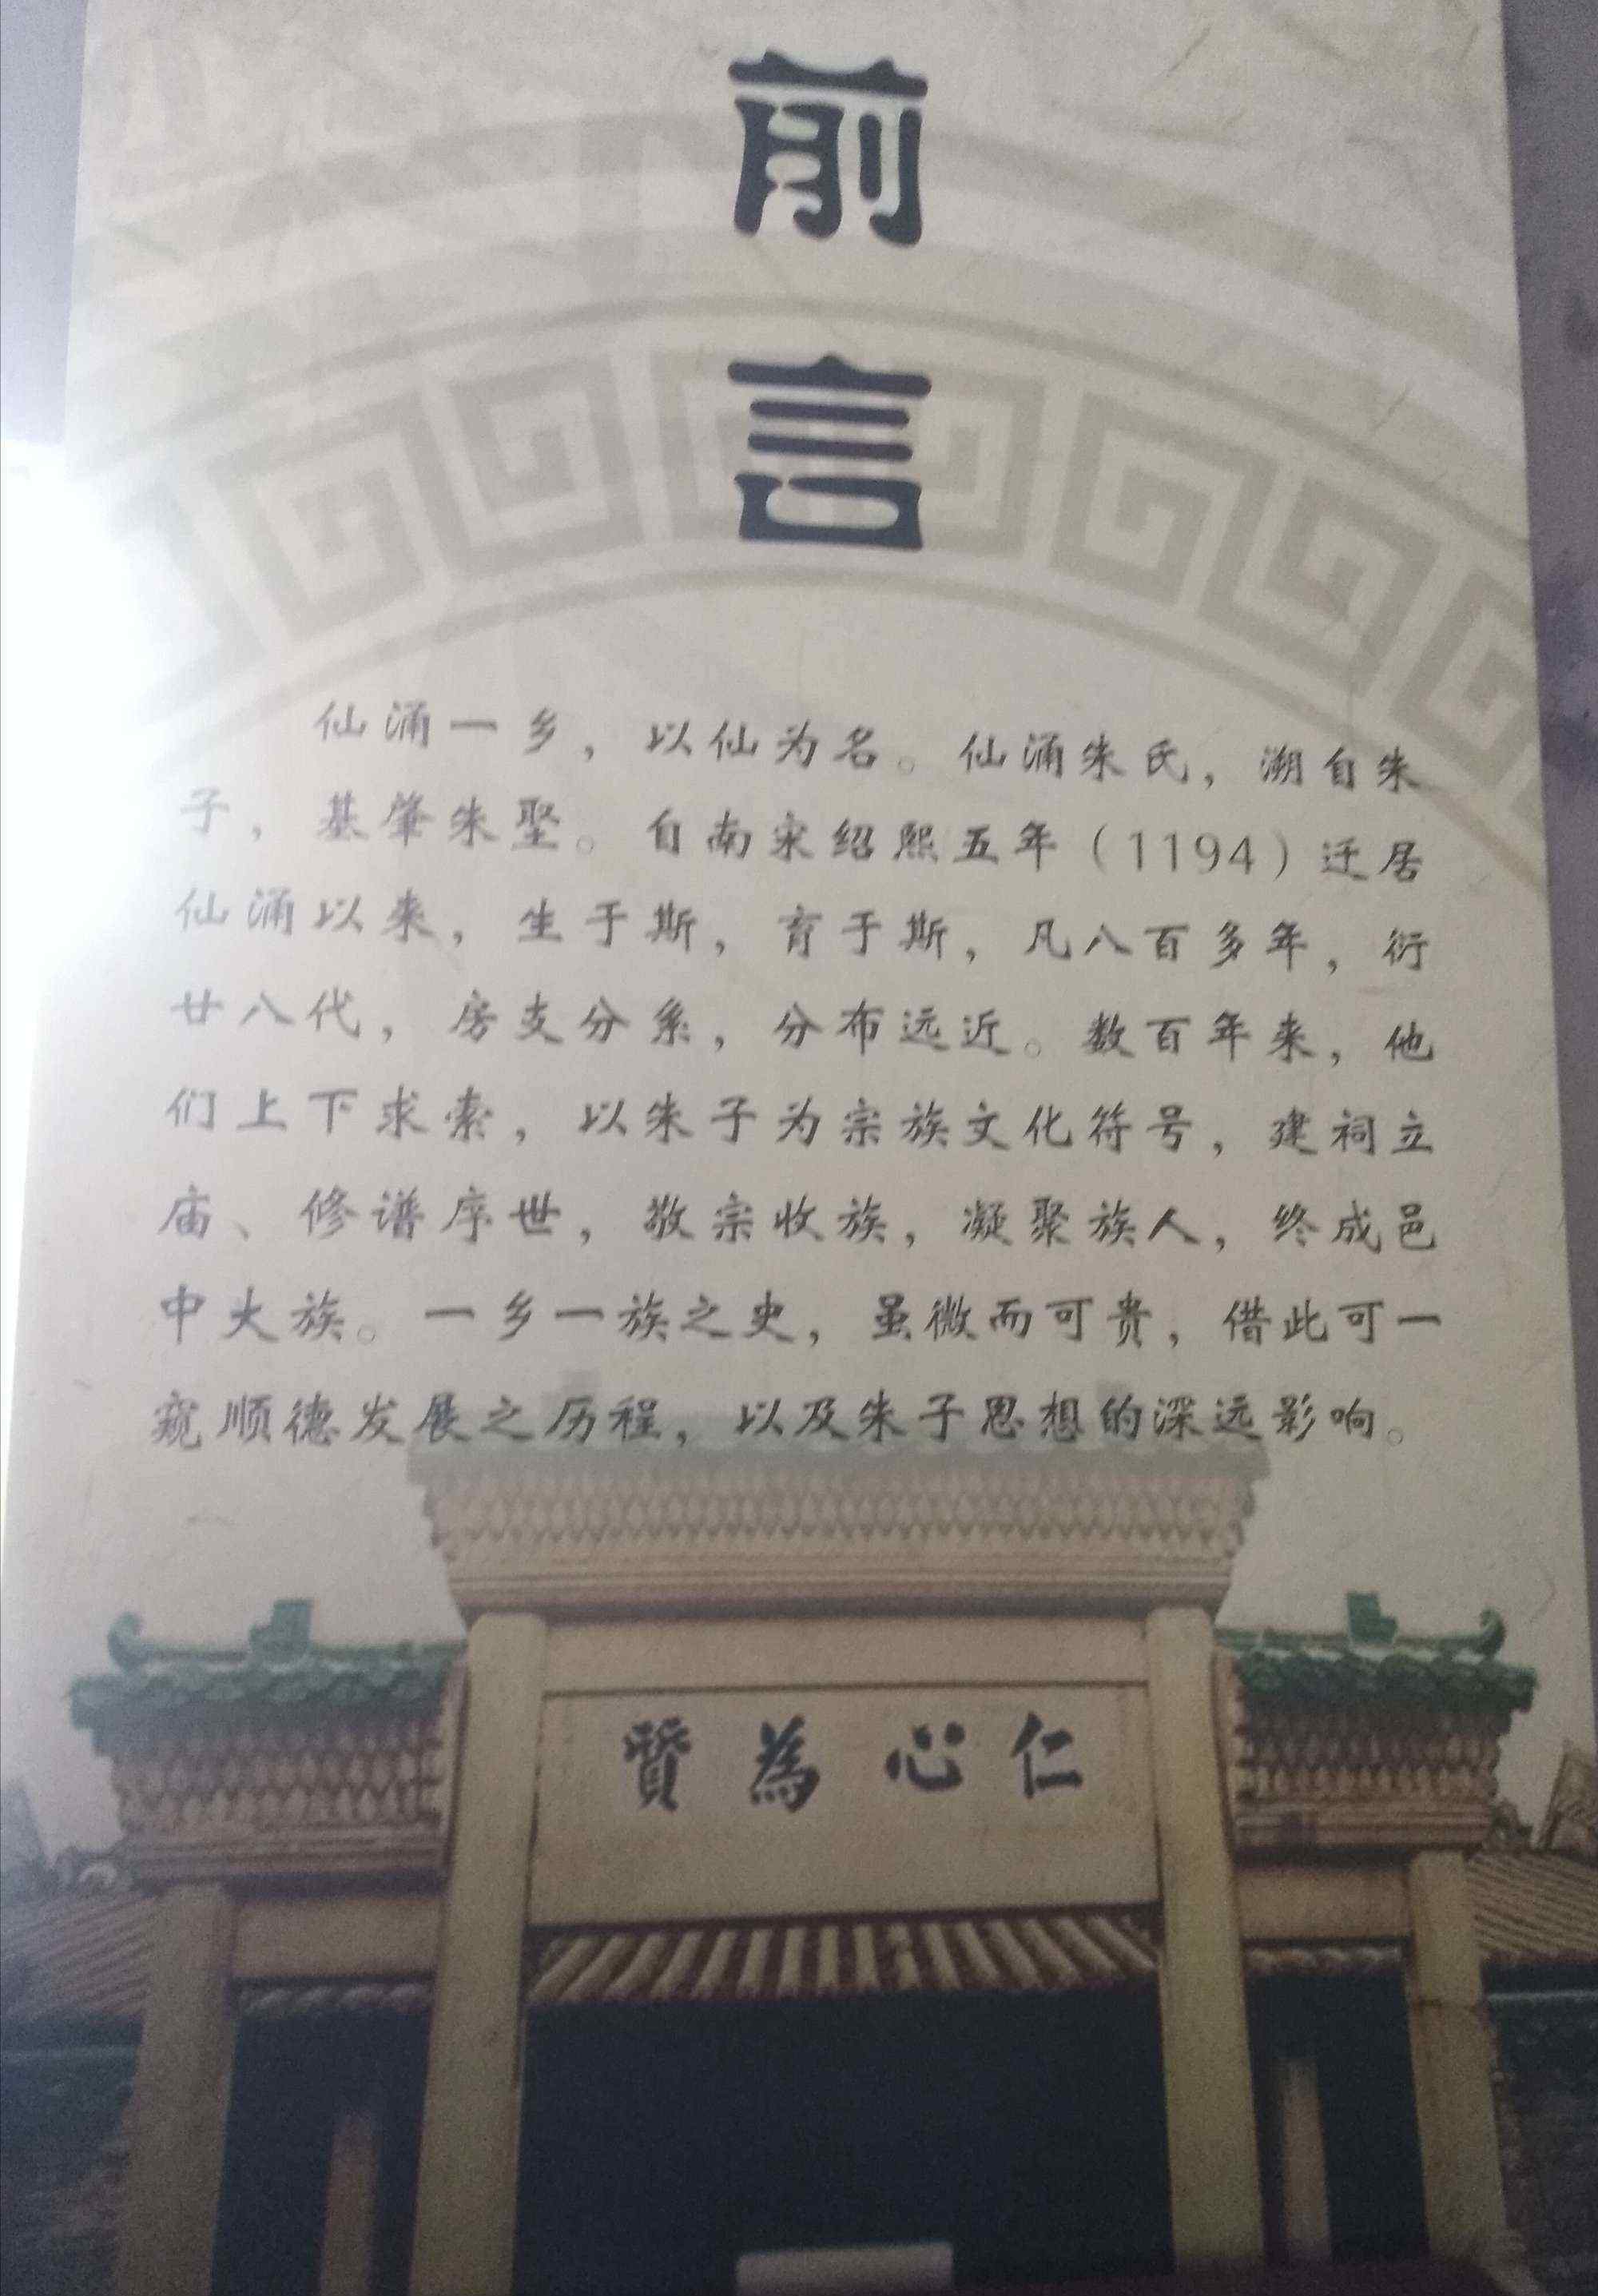 前
言
仙涌一乡，以仙为名。仙涌朱氏，溯自朱
子，基肇朱埾。自南宋绍熙五年（1194）迁居
仙涌以来，生于斯，育于斯，凡八百多年，衍
廿八代，房支分系，分布远近。数百年来，他
们上下求索，以朱子为宗族文化符号，建祠立
庙、修谱序世，敬宗收族，凝聚族人，终成邑
中大族。一乡一族之史，虽微而可贵，借此可一
窥顺德发展之历程，以及朱子思想的深远影响。
賢為心仁